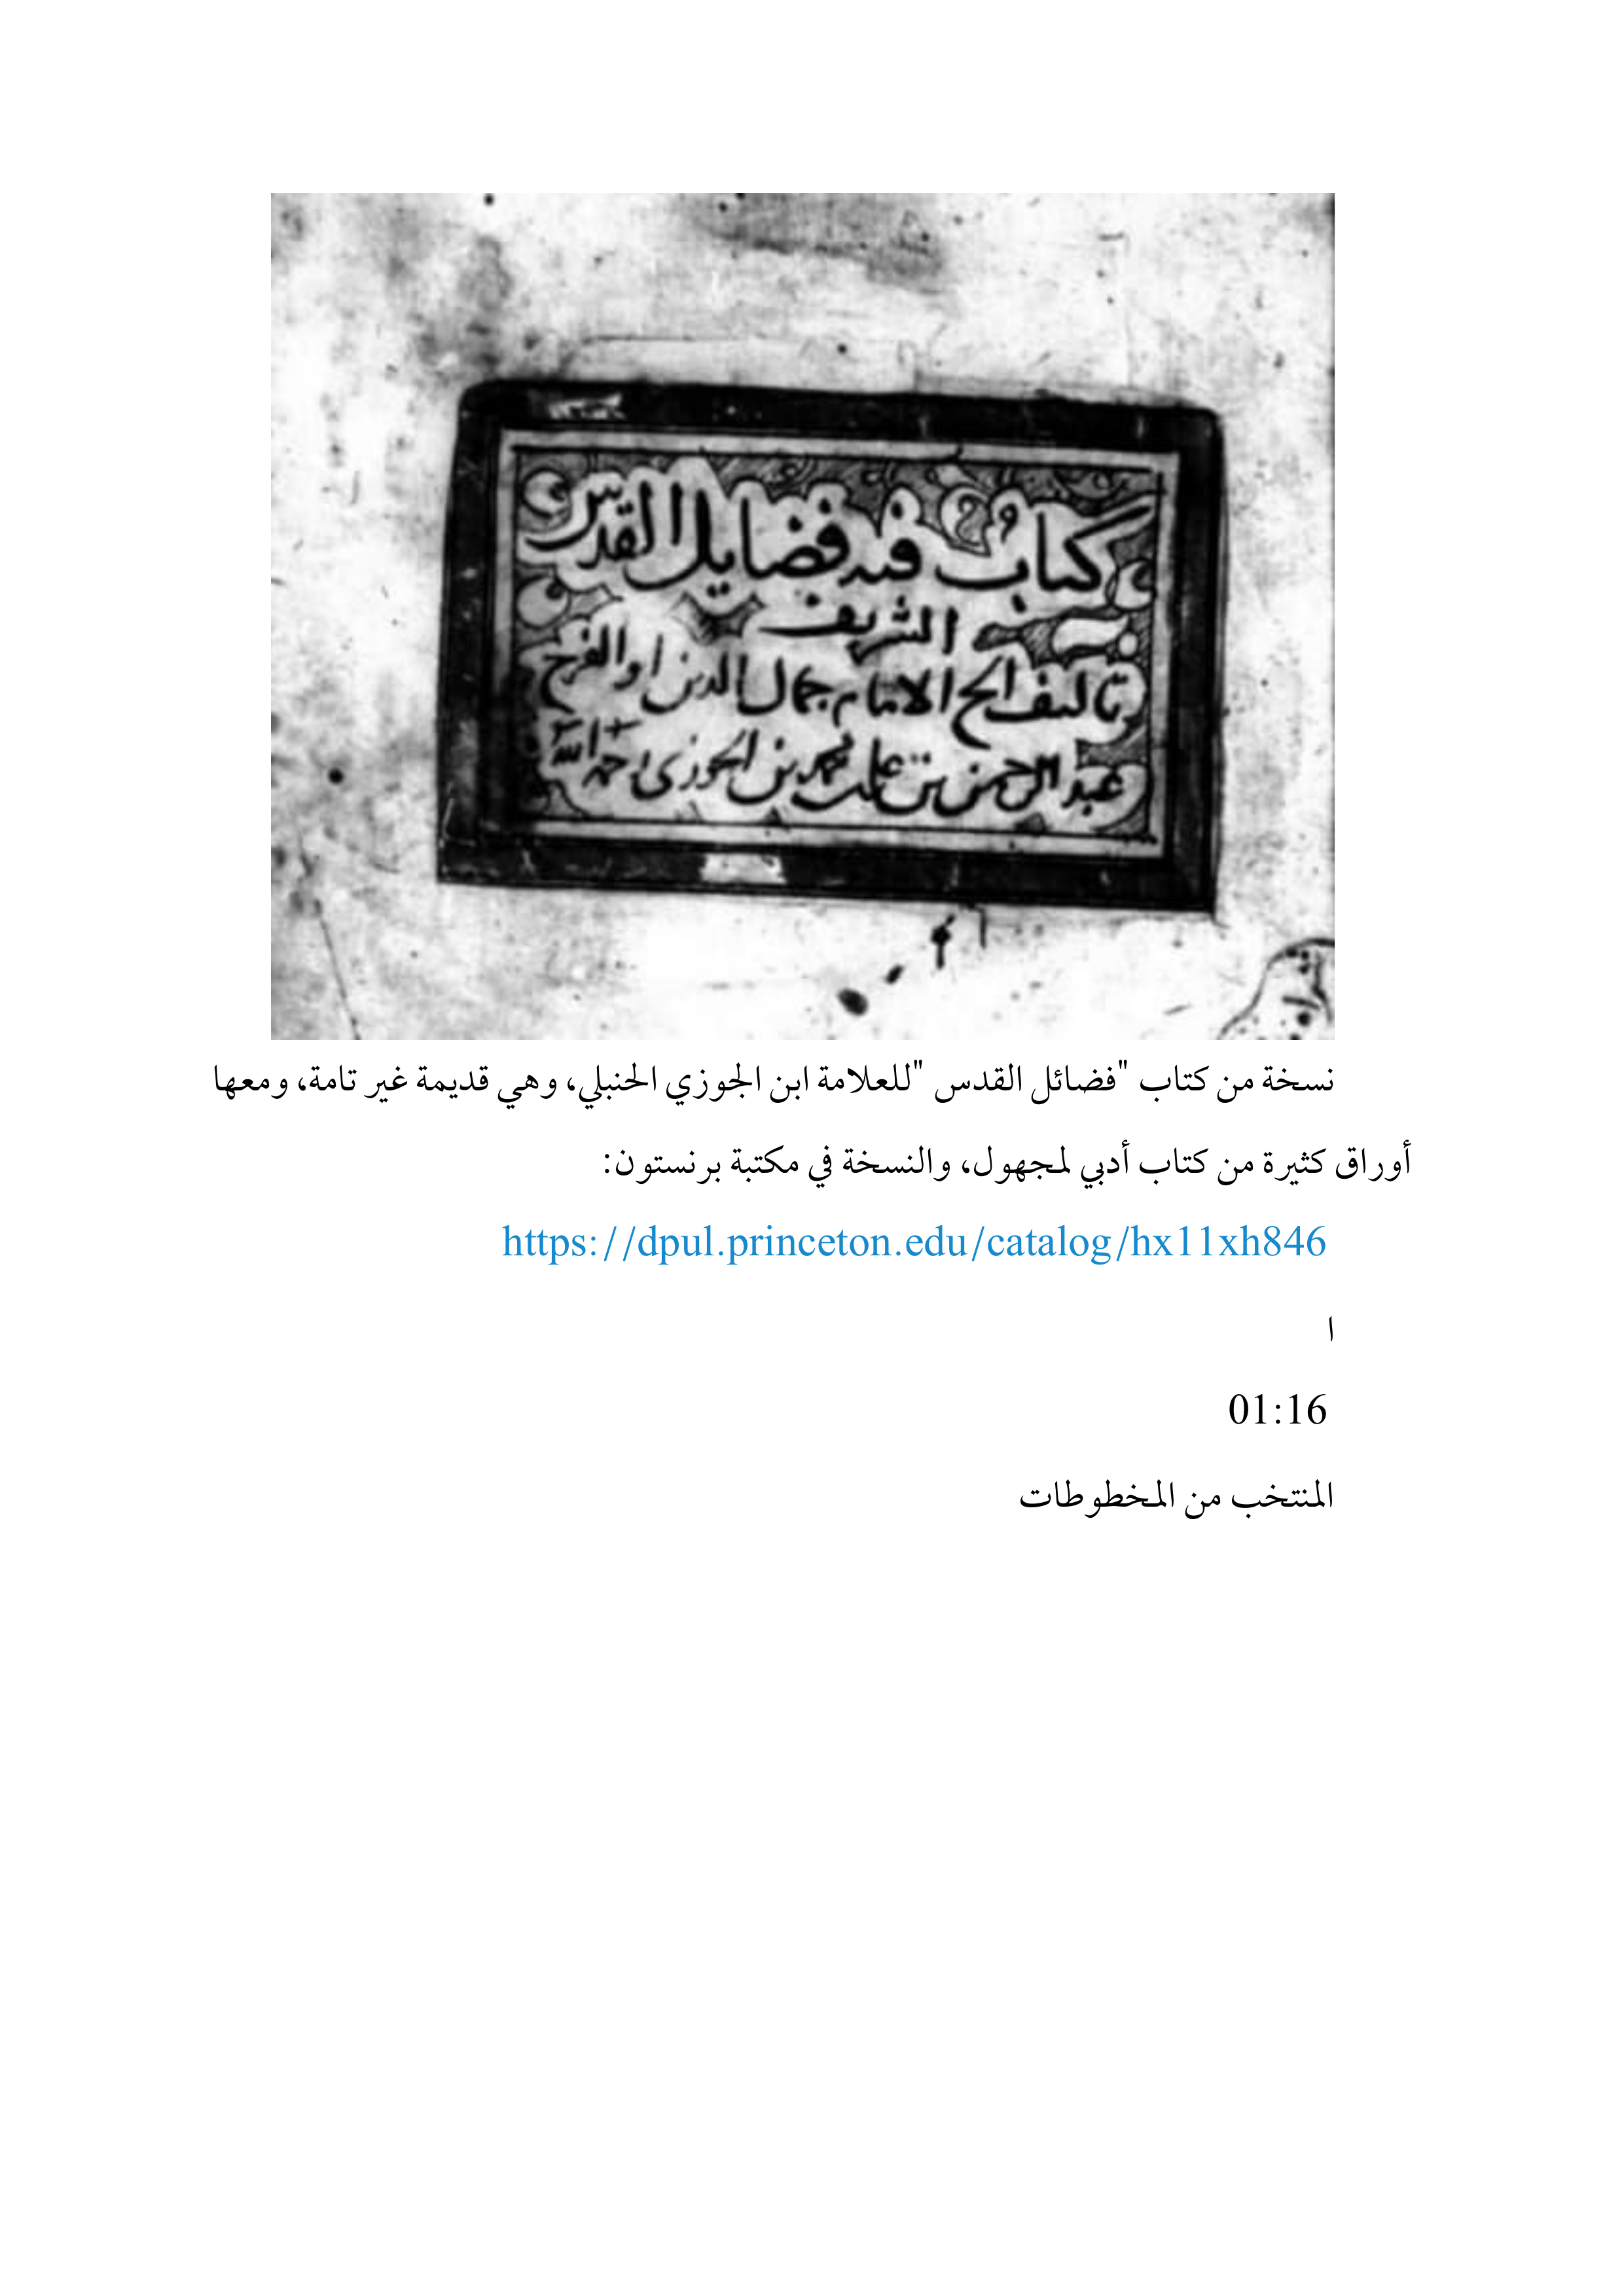 كتاب فيه فضايل القدس
الشريف
تاليف الامام جمال الدين ابو الفرج
عبد الرحمن بن علي بن محمد بن الجوزي رحمه الله
نسخة من كتاب "فضائل القدس "للعلامة ابن الجوزي الحنبلي، وهي قديمة غير تامة، ومعها
أوراق كثيرة من كتاب أدبي لمجهول، والنسخة في مكتبة برنستون:
https://dpul.princeton.edu/catalog/hx11xh846
ا
01:16
المنتخب من المخطوطات